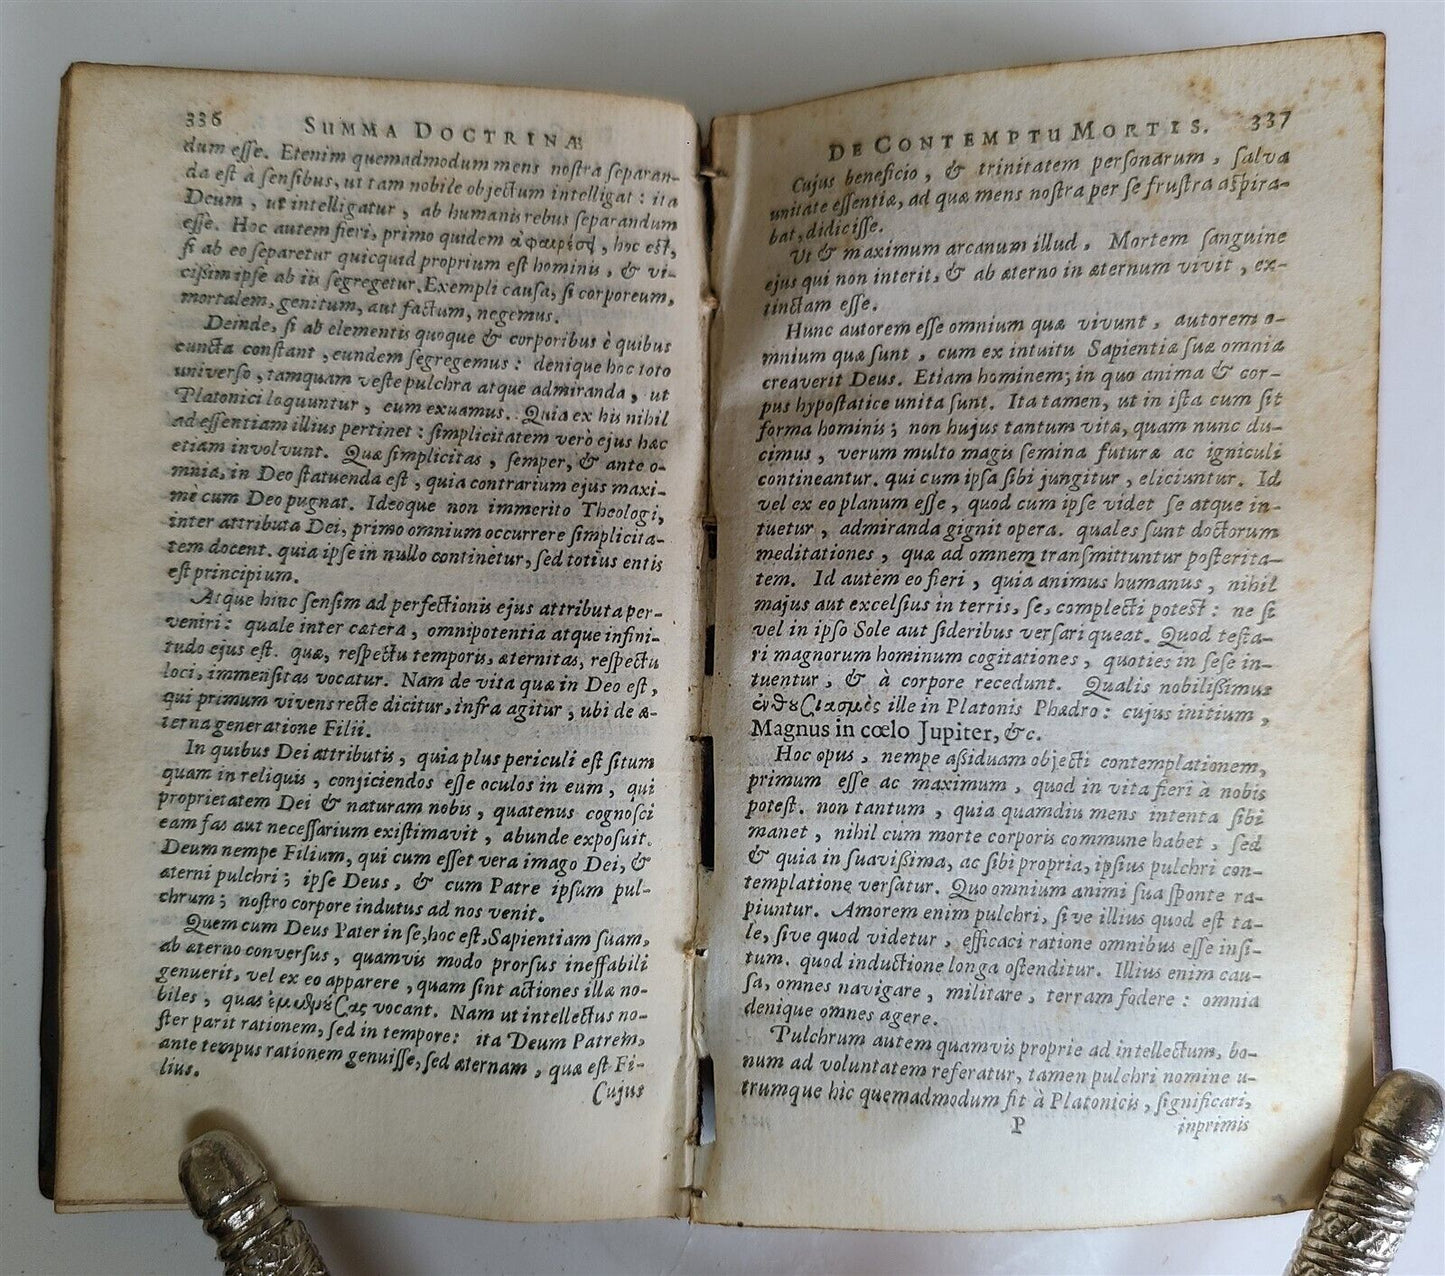 336 SUMMA DOCTRINÆ
dum eſſe. Etenim quemadmodum mens noſtra ſeparan-
da eſt à ſenſibus, ut tam nobile objectum intelligat: ita
Deum, ut intelligatur, ab humanis rebus ſeparandum
eſſe. Hoc autem fieri, primo quidem ἀφαιρέσῃ, hoc eſt,
ſi ab eo ſeparetur quicquid proprium eſt hominis, & vi-
ciſſim ipſe ab iis ſegregetur. Exempli cauſa, ſi corporeum,
mortalem, genitum, aut factum, negemus.
Deinde, ſi ab elementis quoque & corporibus è quibus
cuncta conſtant, eundem ſegregemus: denique hoc toto
univerſo, tamquam veſte pulchra atque admiranda, ut
Platonici loquuntur, eum exuamus. Quia ex his nihil
ad eſſentiam illius pertinet: ſimplicitatem verò ejus hæc
etiam involvunt. Quæ ſimplicitas, ſemper, & ante o-
mnia, in Deo ſtatuenda eſt, quia contrarium ejus maxi-
mè cum Deo pugnat. Ideoque non immerito Theologi,
inter attributa Dei, primo omnium occurrere ſimplicita-
tem docent. quia ipſe in nullo continetur, ſed totius entis
eſt principium.
Atque hinc ſenſim ad perfectionis ejus attributa per-
veniri: quale inter cætera, omnipotentia atque infini-
tudo ejus eſt. quæ, reſpectu temporis, æternitas, reſpectu
loci, immenſitas vocatur. Nam de vita quæ in Deo eſt,
qui primum vivens recte dicitur, infra agitur, ubi de æ-
terna generatione Filii.
In quibus Dei attributis, quia plus periculi eſt ſitum
quam in reliquis, conjiciendos eſſe oculos in eum, qui
proprietatem Dei & naturam nobis, quatenus cognoſci
eam fas aut neceſſarium exiſtimavit, abunde expoſuit.
Deum nempe Filium, qui cum eſſet vera imago Dei, &
æterni pulchri; ipſe Deus, & cum Patre ipſum pul-
chrum; noſtro corpore indutus ad nos venit.
Quem cum Deus Pater in ſe, hoc eſt, Sapientiam ſuam,
ab æterno converſus, quamvis modo prorſus ineffabili
genuerit, vel ex eo apparere, quam ſint actiones illæ no-
biles, quas vocant. Nam ut intellectus no-
ſter parit rationem, ſed in tempore: ita Deum Patrem,
ante tempus rationem genuiſſe, ſed æternam, quæ eſt Fi-
lius.
Cujus
DE CONTEMPTU MORTIS. 337
Cujus beneficio, & trinitatem perſonarum, ſalva
unitate eſſentiæ, ad quæ mens noſtra per ſe fruſtra aſpira-
bat, didiciſſe.
Ut & maximum arcanum illud, Mortem ſanguine
ejus qui non interit, & ab æterno in æternum vivit, ex-
tinctam eſſe.
Hunc autorem eſſe omnium quæ vivunt, autorem o-
mnium quæ ſunt, cum ex intuitu Sapientiæ ſuæ omnia
creaverit Deus. Etiam hominem; in quo anima & cor-
pus hypoſtatice unita ſunt. Ita tamen, ut in iſta cum ſit
forma hominis; non hujus tantum vitæ, quam nunc du-
cimus, verum multo magis ſemina futuræ ac igniculi
contineantur. qui cum ipſa ſibi jungitur, eliciuntur. Id
vel ex eo planum eſſe, quod cum ipſe videt ſe atque in-
tuetur, admiranda gignit opera. quales ſunt doctorum
meditationes, quæ ad omnem tranſmittuntur poſterita-
tem. Id autem eo fieri, quia animus humanus, nihil
majus aut excelſius in terris, ſe, complecti poteſt: ne ſi
vel in ipſo Sole aut ſideribus verſari queat. Quod teſta-
ri magnorum hominum cogitationes, quoties in ſeſe in-
tuentur, & à corpore recedunt. Qualis nobiliſſimus
ἐνθουσιασμὸς ille in Platonis Phædro: cujus initium,
Magnus in cœlo Jupiter, &c.
Hoc opus, nempe aſſiduam objecti contemplationem,
primum eſſe ac maximum, quod in vita fieri à nobis
poteſt. non tantum, quia quamdiu mens intenta ſibi
manet, nihil cum morte corporis commune habet, ſed
& quia in ſuaviſſima, ac ſibi propria, ipſius pulchri con-
templatione verſatur. Quo omnium animi ſua ſponte ra-
piuntur. Amorem enim pulchri, ſive illius quod eſt ta-
le, ſive quod videtur, efficaci ratione omnibus eſſe inſi-
tum. quod inductione longa oſtenditur. Illius enim cau-
ſa, omnes navigare, militare, terram fodere: omnia
denique omnes agere.
Pulchrum autem quamvis proprie ad intellectum, bo-
num ad voluntatem referatur, tamen pulchri nomine u-
trumque hic quemadmodum fit à Platonicis, ſignificari,
P inprimis